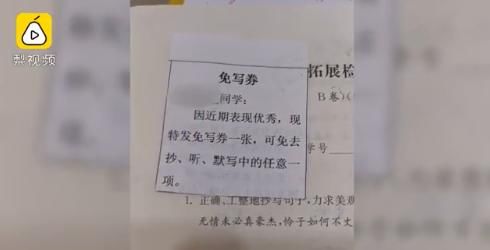 梨视频
免写券
同学：
因近期表现优秀，现
特发免写券一张，可免去
抄、听、默写中的任意一
项。
拓展检
B卷)(
学号
1. 正确、工整地抄写句子，力求美观
无情未必真豪杰，怜子如何不丈